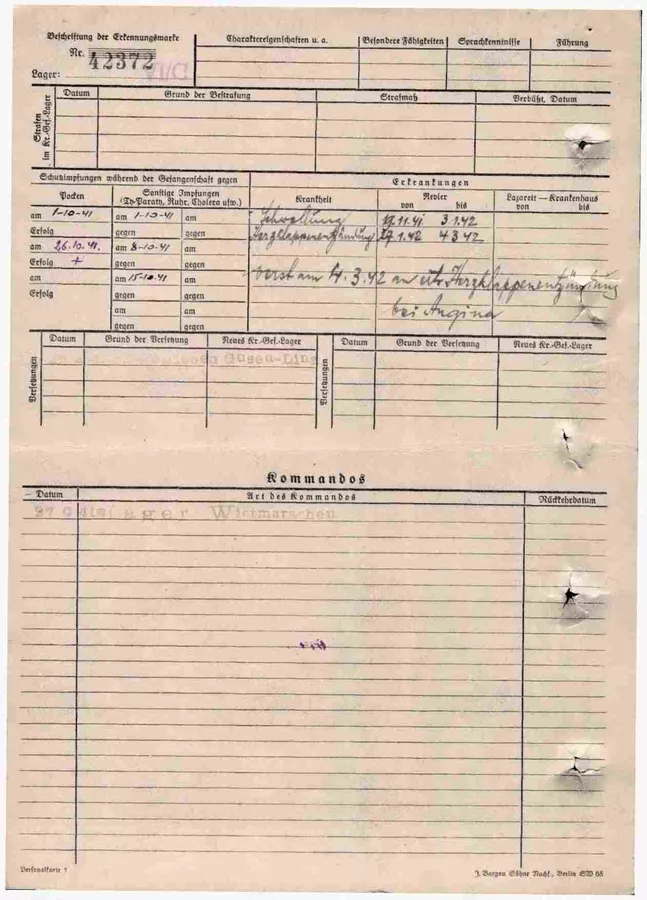 Beschriftung der Erkennungsmarke
Nr. 42372
Lager:
Charaktereigenschaften u. a.
Besondere Fähigkeiten
Sprachkenntnisse
Führung
Strafen im Kr.-Gef.-Lager
Datum
Grund der Bestrafung
Strafmaß
Verbüßt, Datum
Schutzimpfungen während der Gefangenschaft gegen
Erkrankungen
Pocken
Sonstige Impfungen
(Ty-Paraty, Ruhr, Cholera usw.)
Krankheit
Revier
von bis
Lazarett — Krankenhaus
von bis
am 1-10-41 am 1-10-41 am Schwellung 17.11.41 3.1.42
Erfolg gegen gegen Herzklappenentzündung 27.1.42 4.3.42
am 26.10.41. am 8-10-41 am
Erfolg + gegen gegen
am am 15-10-41 am verst. am 4.3.42 an Herzklappenentzündung
Erfolg gegen gegen
am am bei Angina
gegen gegen
am am
gegen gegen
Versetzungen
Datum
Grund der Versetzung
Neues Kr.-Gef.-Lager
Versetzungen
Datum
Grund der Versetzung
Neues Kr.-Gef.-Lager
Kommandos
Datum
Art des Kommandos
Rückkehrdatum
Wietmarschen
Personalkarte 1
J. Bargou Söhne Nachf., Berlin SW 68